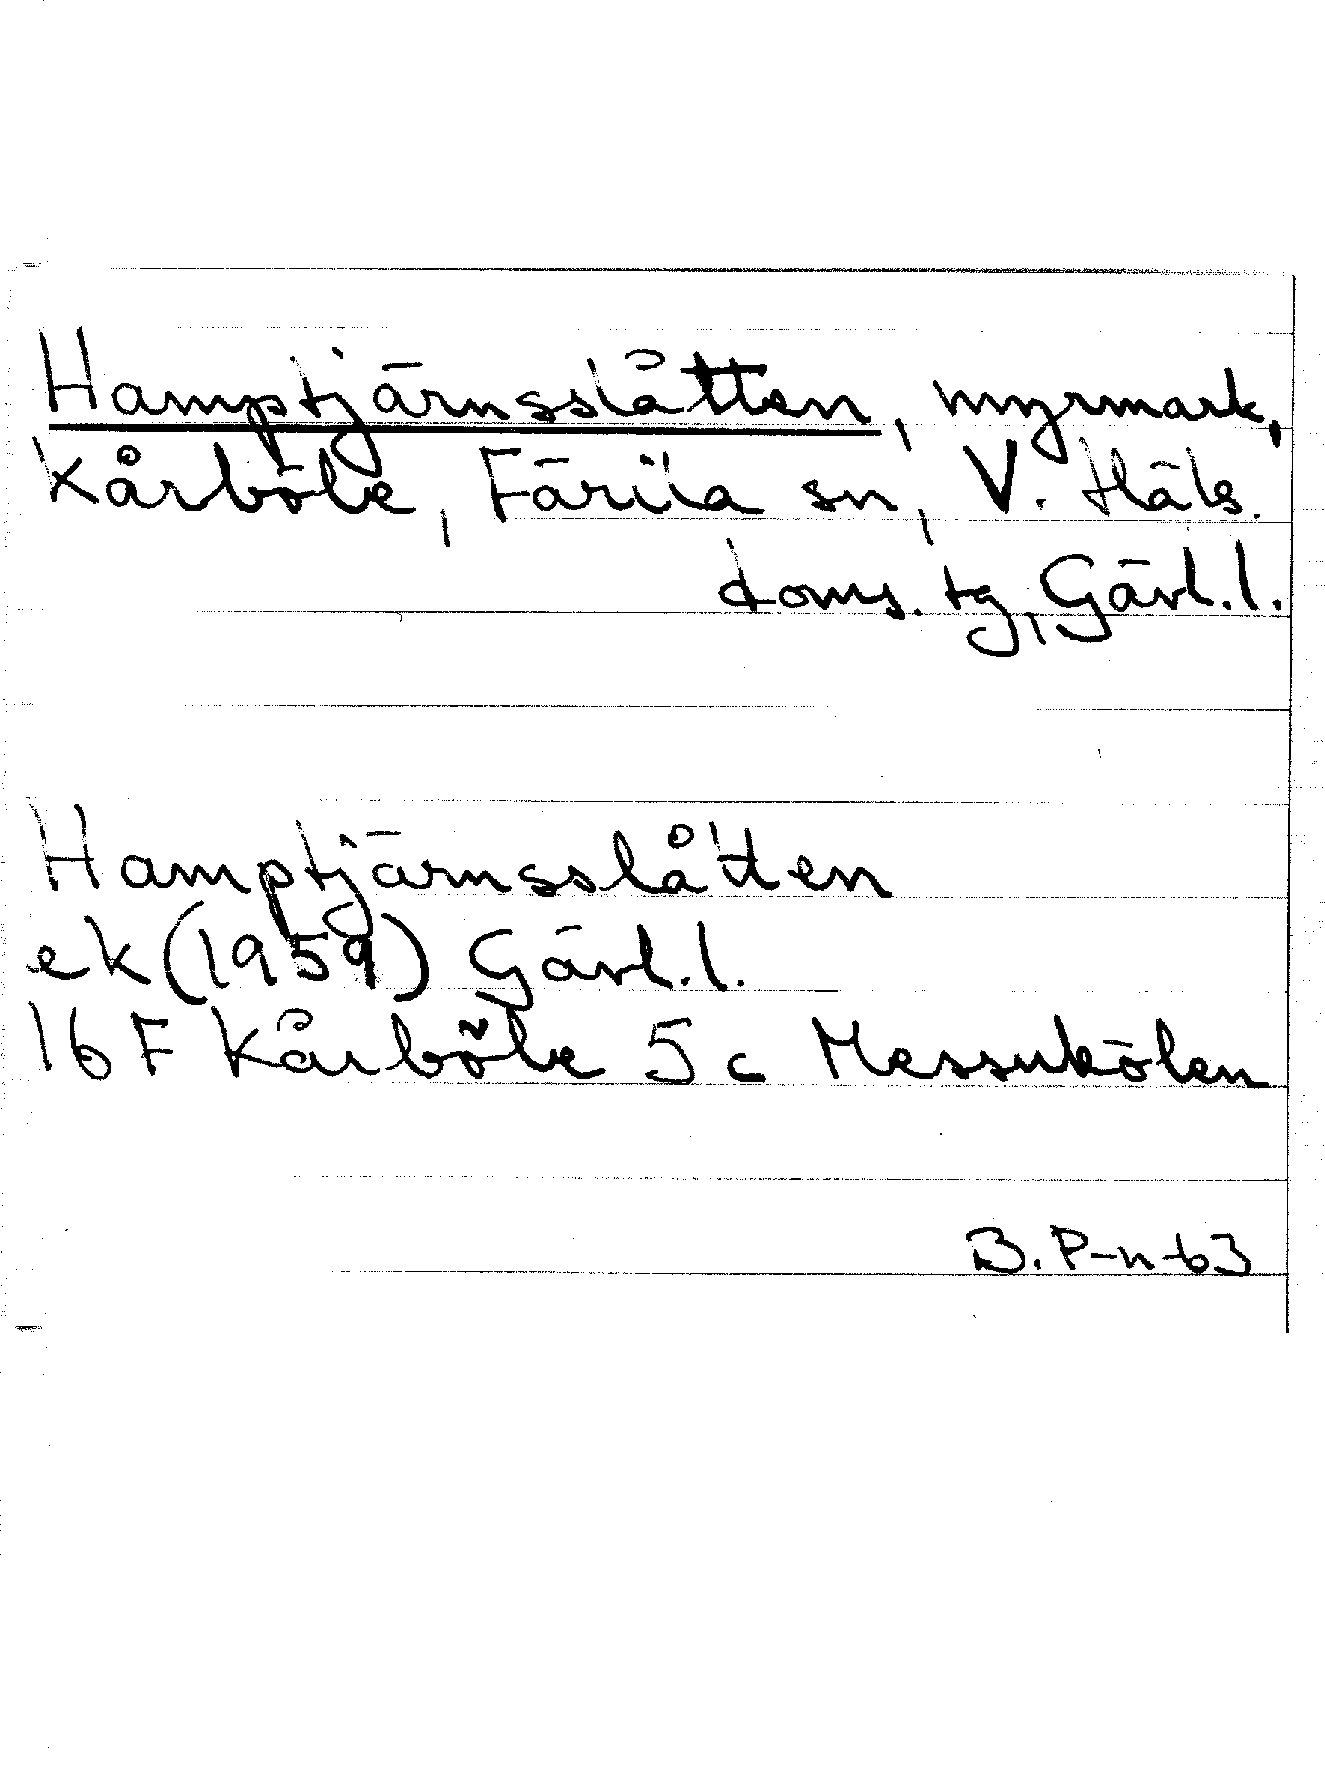 Hamptjärnsslåtten, myrmark,
Kårböle, Färila sn, V. Häls.
doms. tg, Gävl.l.
Hamptjärnsslåtten
ek (1959) Gävl.l.
16 F Kårböle 5 c Messukölen
B.P-n-63